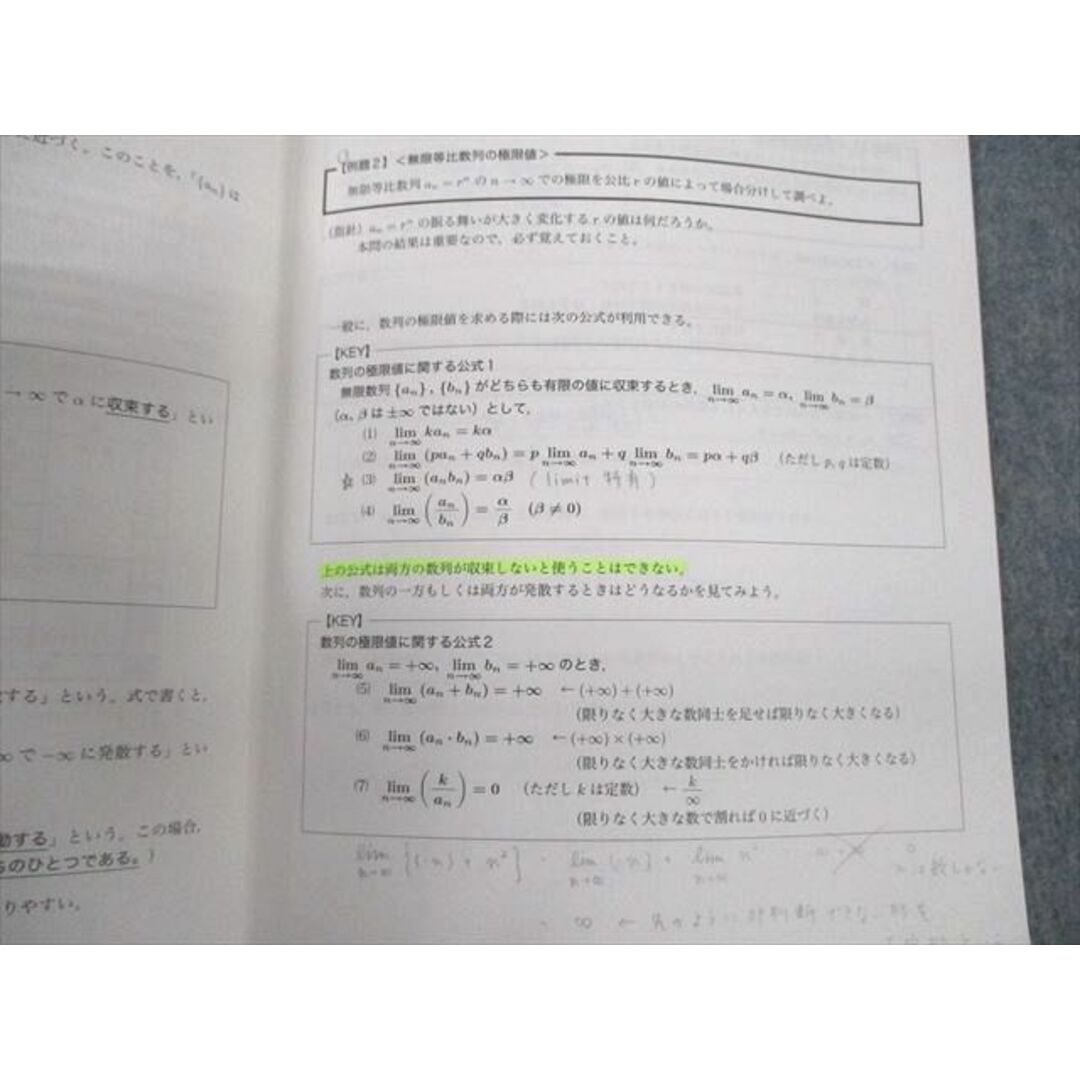 に近づく。このことを,「{aₙ} は
→ ∞ で α に収束する」とい
する」という。式で書くと,
∞ で −∞ に発散する」とい
動する」という。この場合,
ものひとつである。)
りやすい。
【例題2】<無限等比数列の極限値>
無限等比数列 aₙ = rⁿ の n → ∞ での極限を公比 r の値によって場合分けして調べよ。
(指針) aₙ = rⁿ の振る舞いが大きく変化する r の値は何だろうか。
本問の結果は重要なので,必ず覚えておくこと。
一般に,数列の極限値を求める際には次の公式が利用できる。
【KEY】
数列の極限値に関する公式1
無限数列 {aₙ}, {bₙ} がどちらも有限の値に収束するとき, lim_{n→∞} aₙ = α, lim_{n→∞} bₙ = β
(α, β は ±∞ ではない) として,
(1) lim_{n→∞} kaₙ = kα
(2) lim_{n→∞} (paₙ + qbₙ) = p lim_{n→∞} aₙ + q lim_{n→∞} bₙ = pα + qβ (ただし p, q は定数)
☆ (3) lim_{n→∞} (aₙbₙ) = αβ (limit 特有)
(4) lim_{n→∞} (aₙ/bₙ) = α/β (β ≠ 0)
上の公式は両方の数列が収束しないと使うことはできない。
次に,数列の一方もしくは両方が発散するときはどうなるかを見てみよう。
【KEY】
数列の極限値に関する公式2
lim_{n→∞} aₙ = +∞, lim_{n→∞} bₙ = +∞ のとき,
(5) lim_{n→∞} (aₙ + bₙ) = +∞ ← (+∞) + (+∞)
(限りなく大きな数同士を足せば限りなく大きくなる)
(6) lim_{n→∞} (aₙ · bₙ) = +∞ ← (+∞) × (+∞)
(限りなく大きな数同士をかければ限りなく大きくなる)
(7) lim_{n→∞} (k/aₙ) = 0 (ただし k は定数) ← k/∞
(限りなく大きな数で割れば 0 に近づく)
lim_{n→∞} {(-n) + n²} = lim_{n→∞} (-n) + lim_{n→∞} n²
∞ ←